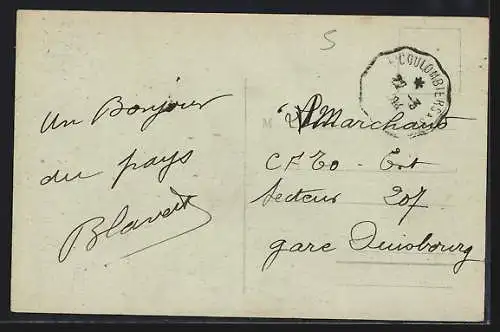 5
COULOMBIERS
*
22 - 3
Un Bonjour
du pays
Blavert
M
Marchand
C.F. To - Ext
Secteur 207
gare Duisbourg